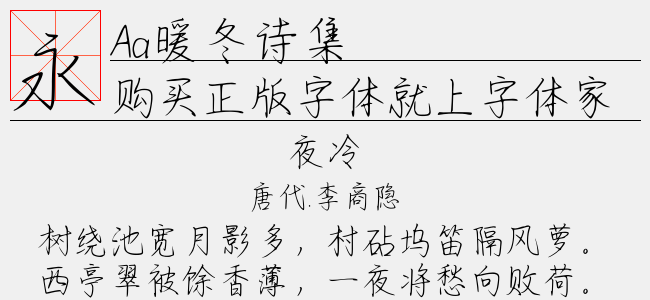 永
Aa暖冬诗集
购买正版字体就上字体家
夜冷
唐代.李商隐
树绕池宽月影多，村砧坞笛隔风萝。
西亭翠被馀香薄，一夜将愁向败荷。